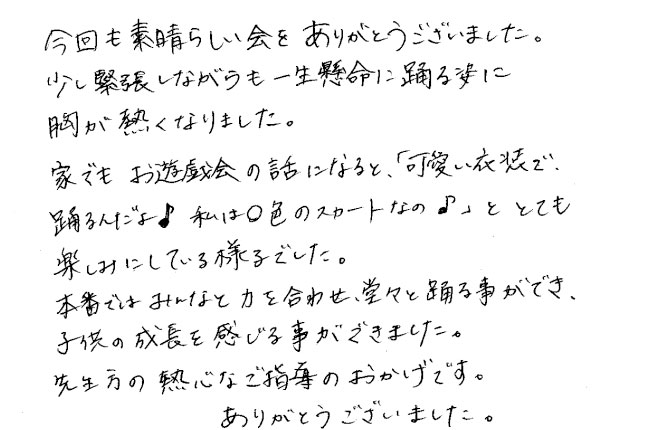 今回も素晴らしい会をありがとうございました。
少し緊張しながらも一生懸命に踊る姿に
胸が熱くなりました。
家でもお遊戯会の話になると、「可愛い衣装で、
踊るんだよ♪ 私は○色のスカートなの♪」ととても
楽しみにしている様子でした。
本番ではみんなと力を合わせ、堂々と踊る事ができ、
子供の成長を感じる事ができました。
先生方の熱心なご指導のおかげです。
ありがとうございました。